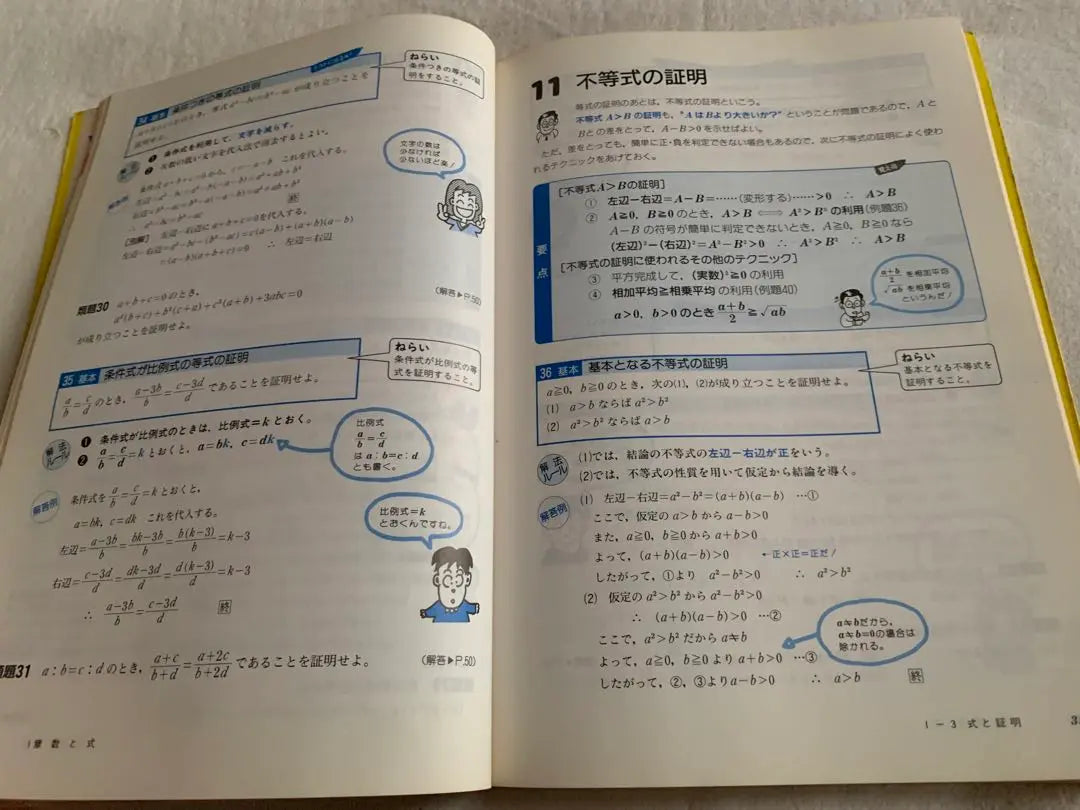 34 基本 条件つきの等式の証明
が成り立つことを
証明せよ。
ねらい
条件つきの等式の証
明をすること。
解法ルール
❶ 条件式を利用して,文字を減らす。
❷ 次数の低い文字を代入法で消去するとよい。
文字の数は
少なければ
少ないほど楽!
解答例
条件式 a+b+c=0から, c=-a-b これを代入する。
左辺=a²-bc=a²-b(-a-b)=a²+ab+b²
右辺=b²-ac=b²-a(-a-b)=a²+ab+b²
∴ a²-bc=b²-ac 終
[別解] 左辺-右辺にa+b+c=0を代入する。
左辺-右辺=a²-bc-(b²-ac)=c(a-b)+(a+b)(a-b)
=(a-b)(a+b+c)=0 ∴ 左辺=右辺
類題30 a+b+c=0のとき,
a²(b+c)+b²(c+a)+c²(a+b)+3abc=0
が成り立つことを証明せよ。
(解答▶P.50)
35 基本 条件式が比例式の等式の証明
a/b=c/d のとき, (a-3b)/b=(c-3d)/d であることを証明せよ。
ねらい
条件式が比例式の等
式を証明すること。
解法ルール
❶ 条件式が比例式のときは,比例式=k とおく。
❷ a/b=c/d=k とおくと, a=bk, c=dk
比例式
a/b=c/d
は a:b=c:d
とも書く。
解答例
条件式を a/b=c/d=k とおくと,
a=bk, c=dk これを代入する。
左辺=(a-3b)/b=(bk-3b)/b=b(k-3)/b=k-3
右辺=(c-3d)/d=(dk-3d)/d=d(k-3)/d=k-3
∴ (a-3b)/b=(c-3d)/d 終
比例式=k
とおくんですね。
類題31 a:b=c:d のとき, (a+c)/(b+d)=(a+2c)/(b+2d) であることを証明せよ。
(解答▶P.50)
章 数と式
11 不等式の証明
等式の証明のあとは,不等式の証明といこう。
不等式 A>B の証明も,“A は B より大きいか?”ということが問題であるので, A と
B との差をとって, A-B>0 を示せばよい。
ただ,差をとっても,簡単に正・負を判定できない場合もあるので,次に不等式の証明によく使わ
れるテクニックをあげておく。
要点
覚え得
[不等式 A>B の証明]
① 左辺-右辺=A-B=……(変形する)……>0 ∴ A>B
② A≧0, B≧0 のとき, A>B ⟺ A²>B² の利用(例題38)
A-B の符号が簡単に判定できないとき, A≧0, B≧0 なら
(左辺)²-(右辺)²=A²-B²>0 ∴ A²>B² ∴ A>B
[不等式の証明に使われるその他のテクニック]
③ 平方完成して,(実数)²≧0 の利用
④ 相加平均≧相乗平均 の利用(例題40)
a>0, b>0 のとき (a+b)/2≧√ab
(a+b)/2 を相加平均
√ab を相乗平均
というんだ!
36 基本 基本となる不等式の証明
a≧0, b≧0 のとき,次の(1), (2)が成り立つことを証明せよ。
(1) a>b ならば a²>b²
(2) a²>b² ならば a>b
ねらい
基本となる不等式を
証明すること。
解法ルール
(1)では,結論の不等式の左辺-右辺が正をいう。
(2)では,不等式の性質を用いて仮定から結論を導く。
解答例
(1) 左辺-右辺=a²-b²=(a+b)(a-b) …①
ここで,仮定の a>b から a-b>0
また, a≧0, b≧0 から a+b>0
よって, (a+b)(a-b)>0 ←正×正=正だ!
したがって, ①より a²-b²>0 ∴ a²>b²
(2) 仮定の a²>b² から a²-b²>0
∴ (a+b)(a-b)>0 …②
ここで, a²>b² だから a≠b
よって, a≧0, b≧0 より a+b>0 …③
したがって, ②, ③より a-b>0 ∴ a>b 終
a≠b だから,
a=b=0 の場合は
除かれる。
1-3 式と証明